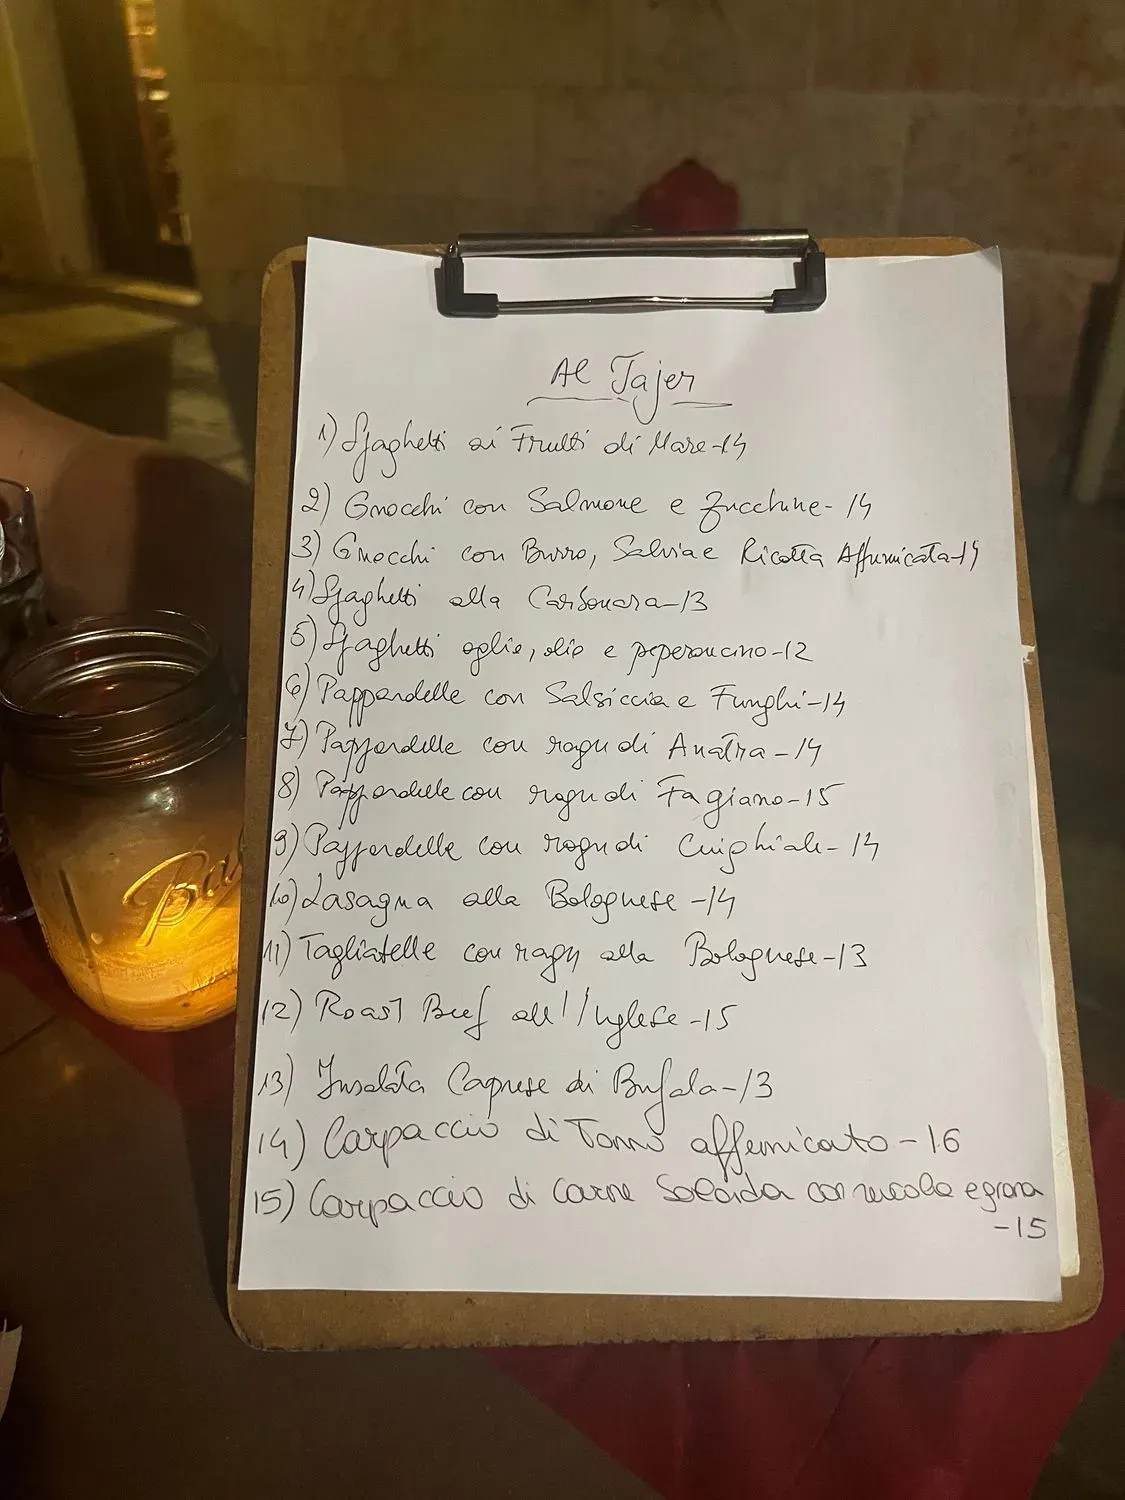 Al Tajer
1) Spaghetti ai Frutti di Mare-14
2) Gnocchi con Salmone e Zucchine-14
3) Gnocchi con Burro, Salvia e Ricotta Affumicata-14
4) Spaghetti alla Carbonara-13
5) Spaghetti aglio, olio e peperoncino-12
6) Pappardelle con Salsiccia e Funghi-14
7) Pappardelle con ragu di Anatra-14
8) Pappardelle con ragu di Fagiano-15
9) Pappardelle con ragu di Cinghiale-14
10) Lasagna alla Bolognese-14
11) Tagliatelle con ragu alla Bolognese-13
12) Roast Beef all'Inglese-15
13) Insalata Caprese di Bufala-13
14) Carpaccio di Tonno affumicato-16
15) Carpaccio di Carne Salada con rucola e grana
-15
Ba